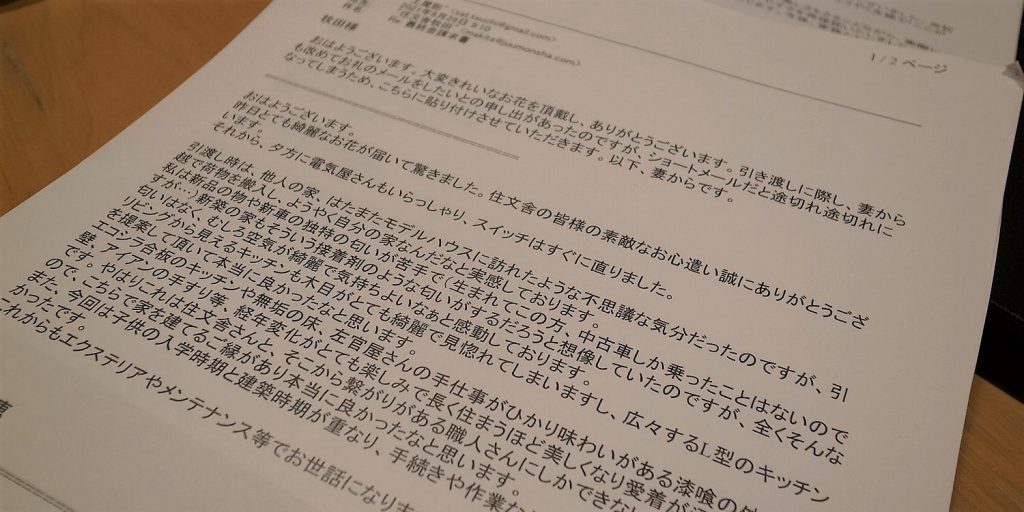 1 / 2 ページ
牧田様
おはようございます。大変きれいなお花を頂戴し、ありがとうございます。引き渡しに際し、妻から
も改めてお礼のメールをしたいとの申し出があったのですが、ショートメールだと途切れ途切れに
なってしまうため、こちらに貼り付けさせていただきます。以下、妻からです。
おはようございます。
昨日とても綺麗なお花が届いて驚きました。住文舎の皆様の素敵なお心遣い誠にありがとうござ
います。
それから、夕方に電気屋さんもいらっしゃり、スイッチはすぐに直りました。
引渡し時は、他人の家、はたまたモデルハウスに訪れたような不思議な気分だったのですが、引
越で荷物を搬入し、ようやく自分の家なんだなと実感しております。
私は新品の物や新車の独特の匂いが苦手で(生まれてこの方、中古車しか乗ったことはないので
すが…)新築の家もそういう接着剤のような匂いがするだろうと想像していたのですが、全くそんな
匂いはなく、むしろ空気が綺麗で気持ちよいなぁと感動しております。
リビングから見えるキッチンも木目がとても綺麗で見惚れてしまいますし、広々するL型のキッチン
を提案して頂いて本当に良かったなと思います。
エコシラ合板のキッチンや無垢の床、左官屋さんの手仕事がひかり味わいがある漆喰の
壁、アイアンの手すり等、経年変化がとても楽しみで長く住まうほど美しくなり愛着が
です。やはりこれは住文舎さんと、そこから繋がりがある職人さんにしかできない
ので、こちらで家を建てるご縁があり本当に良かったなと思います。
また、今回は子供の入学時期と建築時期が重なり、手続きや作業な
かったです。
これからもエクステリアやメンテナンス等でお世話になりま